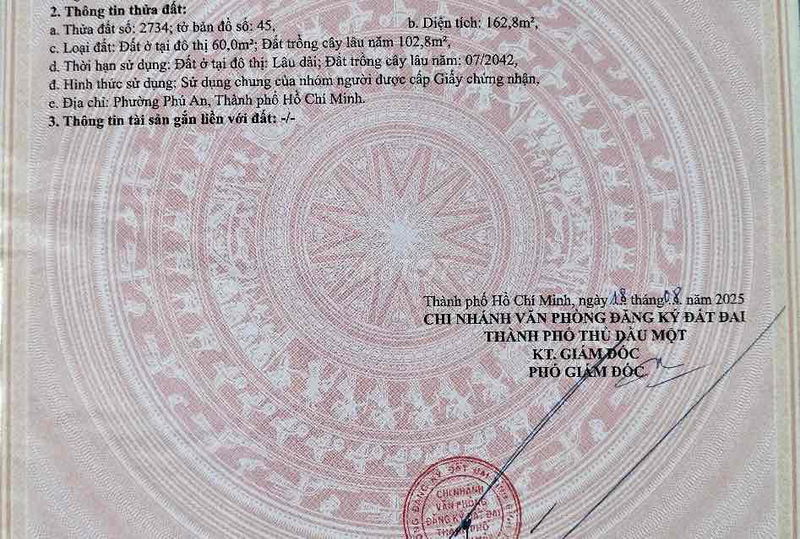 2. Thông tin thửa đất:
a. Thửa đất số: 2734; tờ bản đồ số: 45, b. Diện tích: 162,8m²,
c. Loại đất: Đất ở tại đô thị 60,0m²; Đất trồng cây lâu năm 102,8m²,
d. Thời hạn sử dụng: Đất ở tại đô thị: Lâu dài; Đất trồng cây lâu năm: 07/2042,
đ. Hình thức sử dụng: Sử dụng chung của nhóm người được cấp Giấy chứng nhận,
e. Địa chỉ: Phường Phú An, Thành phố Hồ Chí Minh.
3. Thông tin tài sản gắn liền với đất: -/-
Thành phố Hồ Chí Minh, ngày 18 tháng 08 năm 2025
CHI NHÁNH VĂN PHÒNG ĐĂNG KÝ ĐẤT ĐAI
THÀNH PHỐ THỦ DẦU MỘT
KT. GIÁM ĐỐC
PHÓ GIÁM ĐỐC
ĐĂNG KÝ ĐẤT ĐAI
CHI NHÁNH
VĂN PHÒNG
ĐĂNG KÝ ĐẤT ĐAI
THÀNH PHỐ